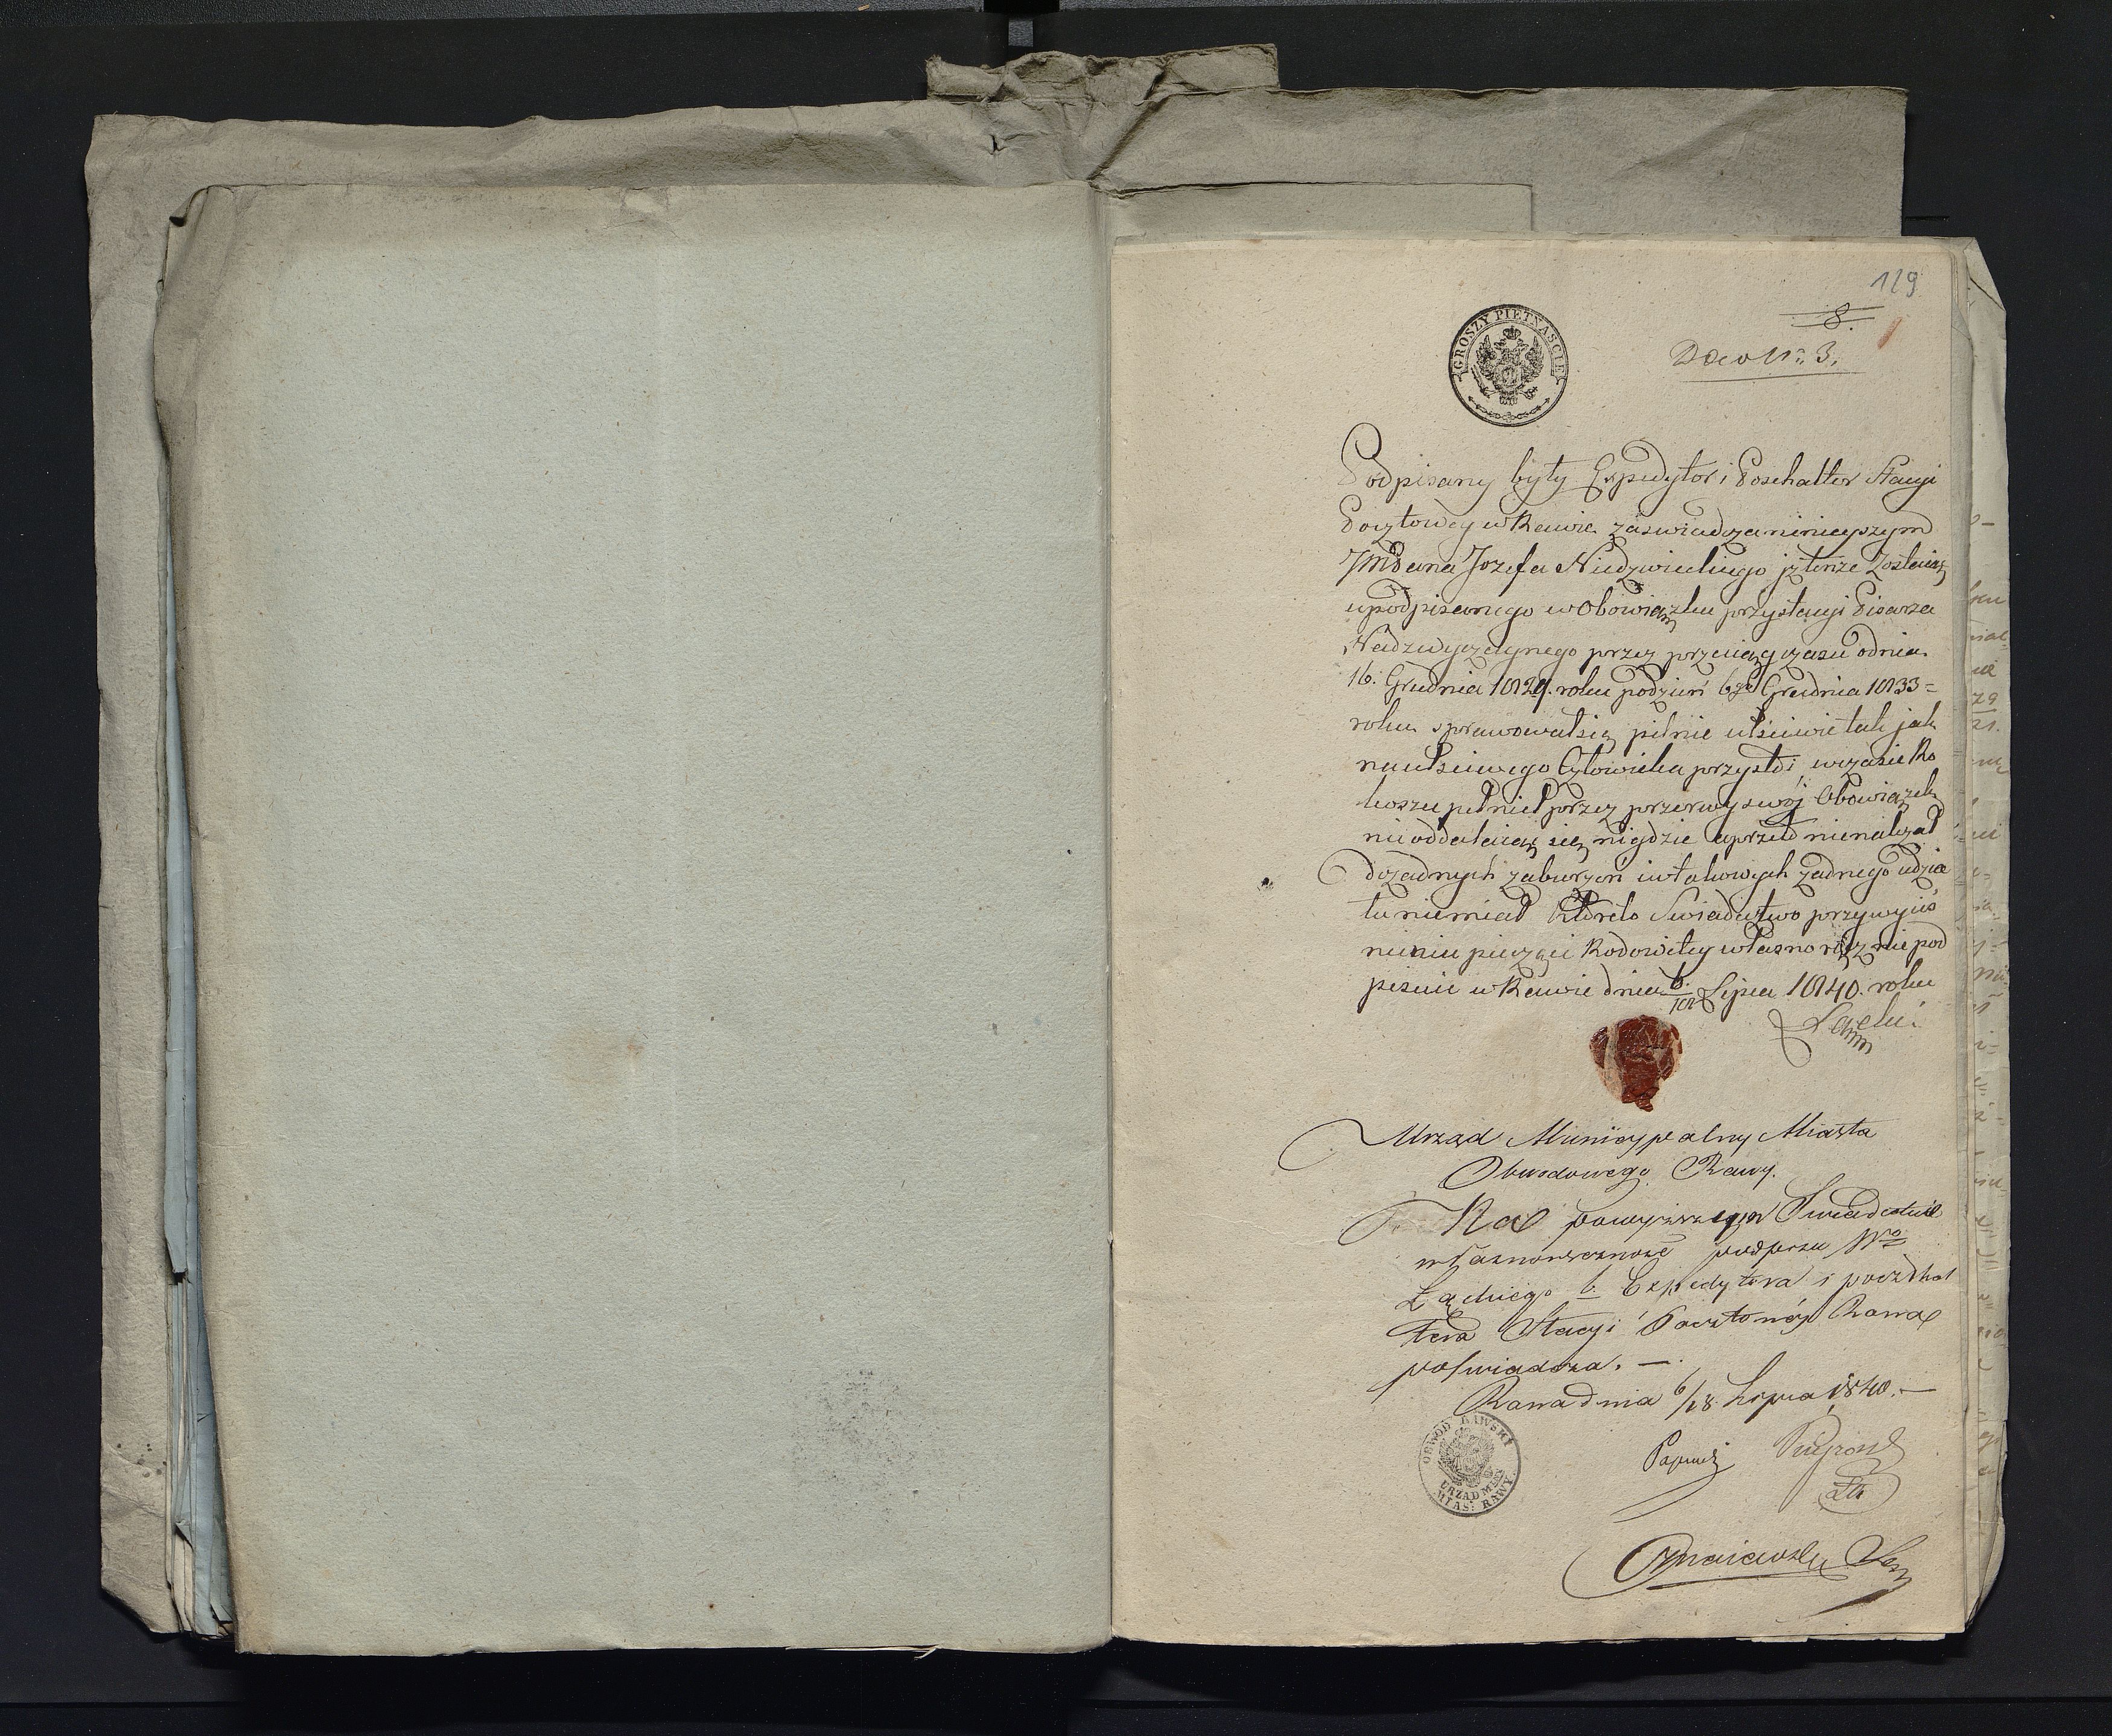 129
8.
Dao N: 3.
GROSZY PIETNAŚCIE
Podpisany były Expedytor i Poczhalter Stacyi
Pocztowey w Rawie zaświadcza ninieyszym
JMPana Jozefa Niedzwieckiego iż tenże Zostaiąc
u podpisanego w Obowiązku przy stacyi Pisarza
Nadzwyczaynego przez przeciąg czasu od nia
16. Grudnia 1829. roku podzień 6go Grudnia 1833=
roku sprawował się pilnie uściwie tak jak
na uściwego Człowieka przystoi, w czasie Ro
koszu pełnieł przez przerwy swój Obowiązek
nie oddalaiąc się nigdzie a przeto nienależał
do żadnych zaburzeń i w takowych żadnego udzia
łu niemiał które to Swiadectwo przy wyciś
nieniu pieczęci Rodowitey własno ręcznie pod
pisuie w Rawie dnia 6/18 Lipca 1840. roku
Łącki
Urząd Municypalny Miasta
Obwodowego Rawy.
Na powyższem Swiadectwie
własnoręczność podpisu Wo
Łąckiego b. Expedytora i poczthal
tera Stacyi Pocztowéj Rawa
poswiadcza. —
Rawa dnia 6/18 Lipca 1840. —
OBWÓD RAWSKI
URZĄD MUN:
MIAS: RAWY.